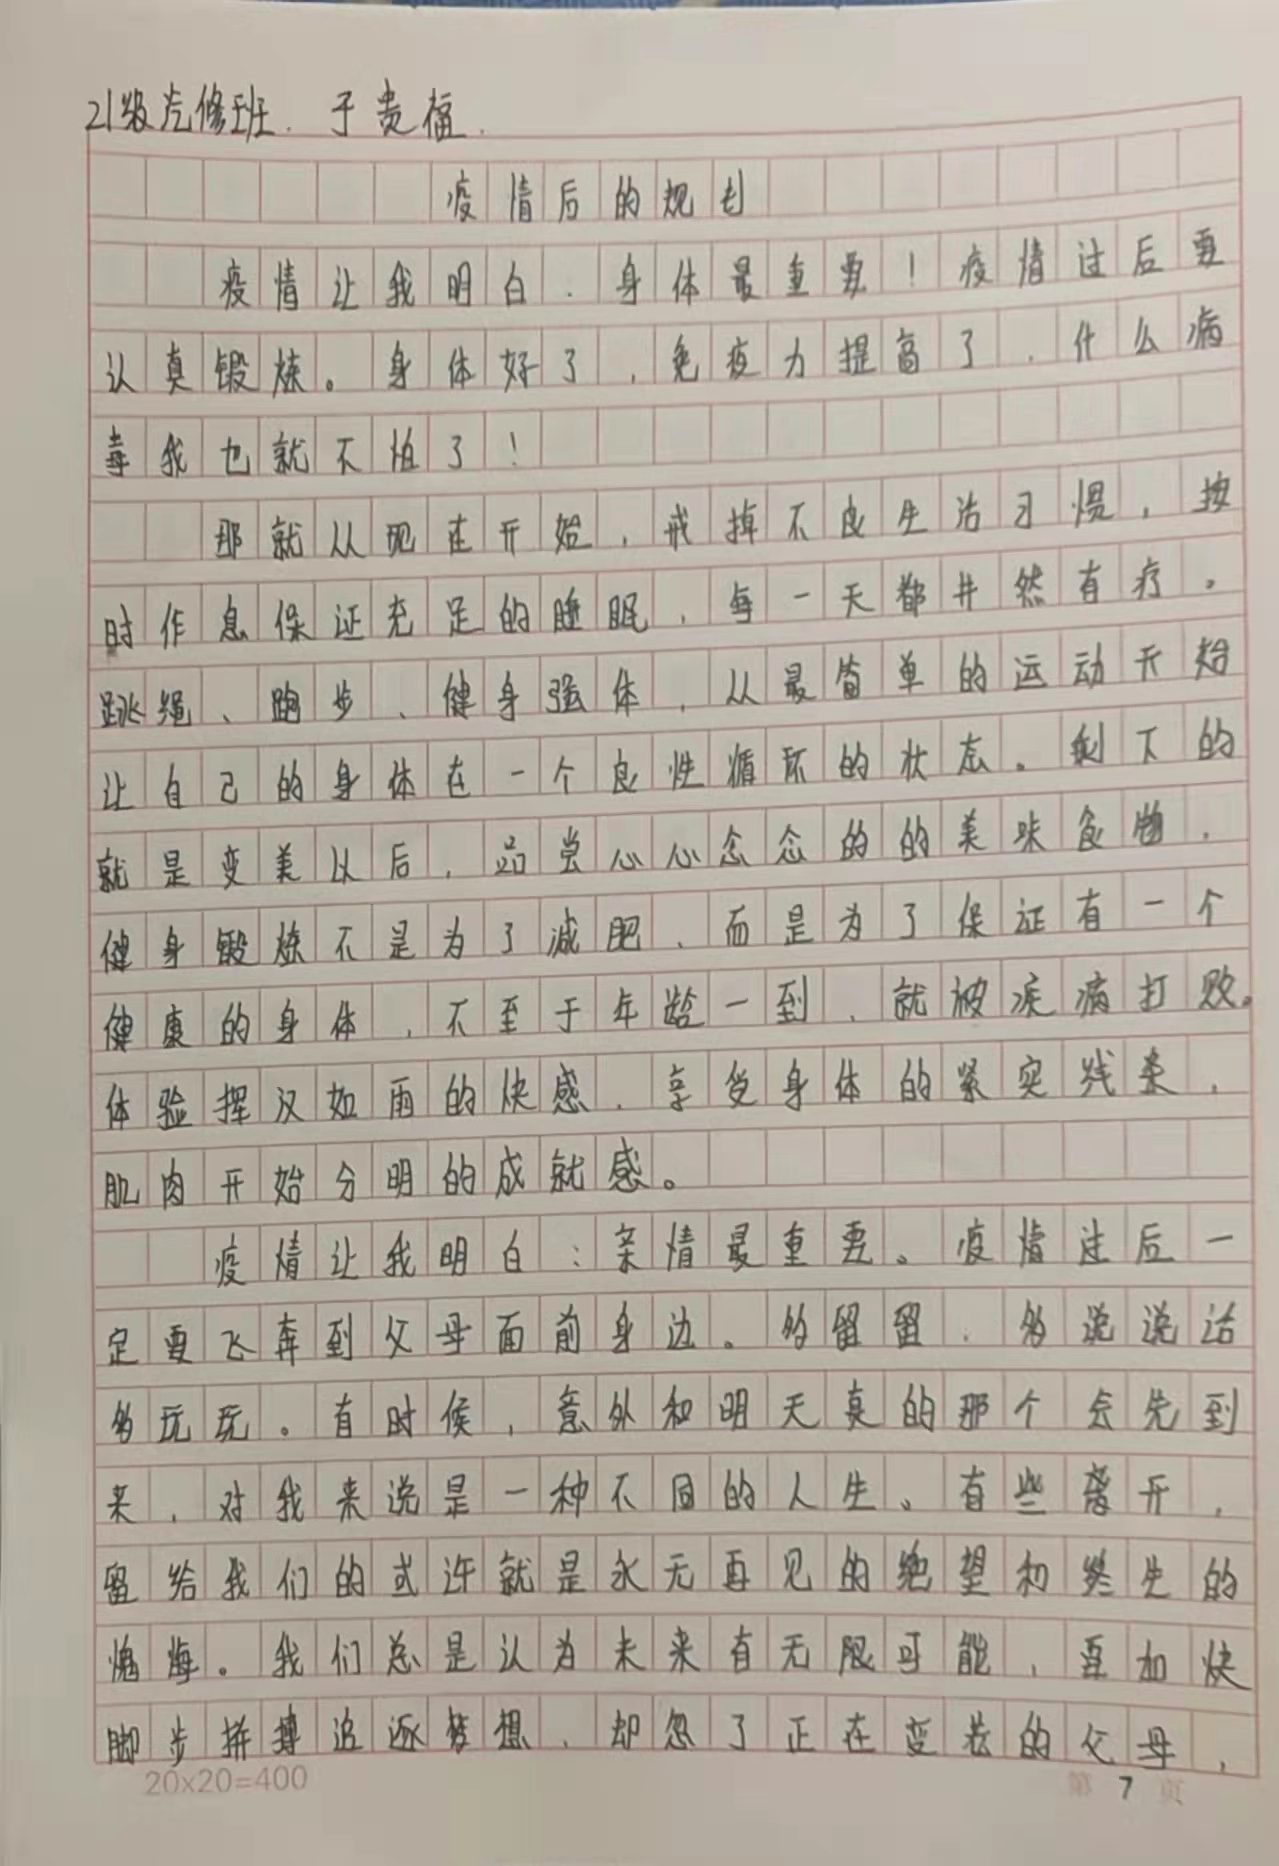 21级汽修班. 于贵福.
疫情后的规划
疫情让我明白.身体最重要!疫情过后要
认真锻炼。身体好了,免疫力提高了,什么病
毒我也就不怕了!
那就从现在开始,戒掉不良生活习惯,按
时作息保证充足的睡眠,每一天都井然有疗。
跳绳、跑步、健身强体,从最简单的运动开始
让自己的身体在一个良性循环的状态。剩下的
就是变美以后,品尝心心念念的的美味食物,
健身锻炼不是为了减肥、而是为了保证有一个
健康的身体,不至于年龄一到、就被疾病打败。
体验挥汉如雨的快感、享受身体的紧实线条,
肌肉开始分明的成就感。
疫情让我明白:亲情最重要。疫情过后一
定要飞奔到父母面前身边。多留留、多说说话
多玩玩。有时候,意外和明天真的那个会先到
来,对我来说是一种不同的人生。有些离开,
留给我们的或许就是永无再见的绝望和终生的
愧悔。我们总是认为未来有无限可能,要加快
脚步拼搏追逐梦想、却忽了正在变老的父母,
20x20=400
第 7 页